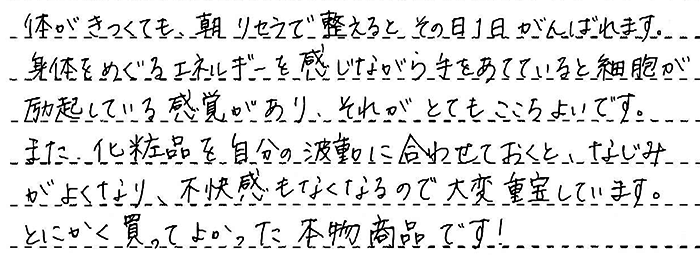 体がきつくても、朝リセラで整えるとその日1日がんばれます。
身体をめぐるエネルギーを感じながら手をあてていると細胞が
励起している感覚があり、それがとてもここちよいです。
また、化粧品を自分の波動に合わせておくと、なじみ
がよくなり、不快感もなくなるので大変重宝しています。
とにかく買ってよかった本物商品です!